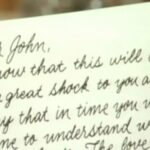 John,
now that this will
great shock to you a
y that in time you w
me to understand w
The love